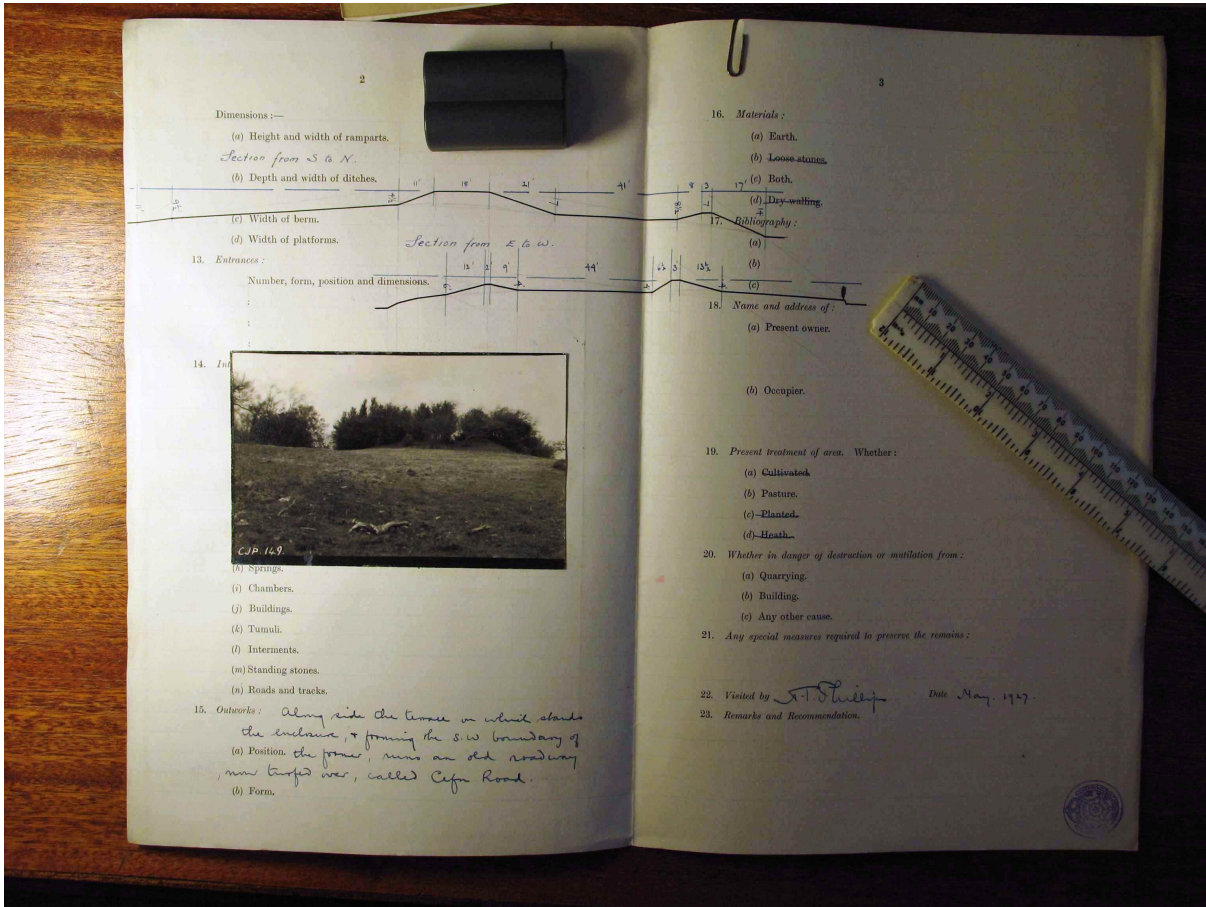 2
Dimensions :—
(a) Height and width of ramparts.
Section from S to N.
(b) Depth and width of ditches.
11' 18' 21' 41' 8 3 17'
(c) Width of berm.
(d) Width of platforms.
Section from E to W.
13. Entrances :
12' 2 9' 44' 6½ 3 13½
Number, form, position and dimensions.
:
:
:
14. Int
CJP. 149.
(h) Springs.
(i) Chambers.
(j) Buildings.
(k) Tumuli.
(l) Interments.
(m) Standing stones.
(n) Roads and tracks.
15. Outworks : Along side the terrace on which stands
the enclosure, & forming the S.W boundary of
(a) Position. the former, runs an old roadway
, now turfed over, called Cefn Road.
(b) Form.
3
16. Materials :
(a) Earth.
(b) Loose stones.
(c) Both.
(d) Dry walling.
17. Bibliography :
(a)
(b)
(c)
18. Name and address of :
(a) Present owner.
(b) Occupier.
19. Present treatment of area. Whether :
(a) Cultivated.
(b) Pasture.
(c) Planted.
(d) Heath.
20. Whether in danger of destruction or mutilation from :
(a) Quarrying.
(b) Building.
(c) Any other cause.
21. Any special measures required to preserve the remains :
22. Visited by Phillips Date May. 1927.
23. Remarks and Recommendation.